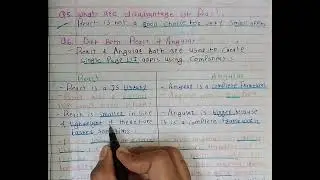 Q5. What are disadvantage of React?
React is not a good choice for very small apps
Q6. Diff Both React & Angular
- React & Angular both are used to create
Single Page UI apps using Components.
React
Angular
- React is a JS Library
- Angular is a complete framework
- React is smaller in size
- Angular is bigger because
& lightweight & therefore
it is a complete framework
faster sometime